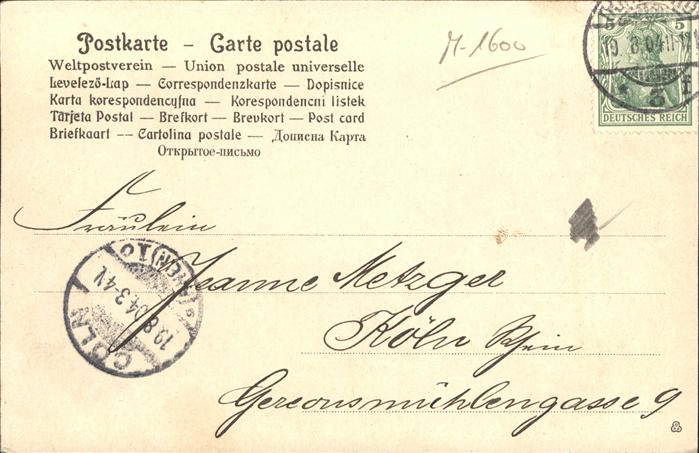 Postkarte – Carte postale
Weltpostverein — Union postale universelle
Levelező-Lap — Correspondenzkarte — Dopisnice
Karta korespondencyjna — Korespondencni listek
Tarjeta Postal — Brefkort — Brevkort — Post card
Briefkaart — Cartolina postale — Дописна Карта
Открытое-письмо
M-1600
5 5
19 8 04 11-12
* g f
DEUTSCHES REICH
Fräulein
Jeanne Metzger
Köln Rhein
Gereonsmühlengasse 9
CÖLN
19.8.04.3-4V
(RHEIN) 1